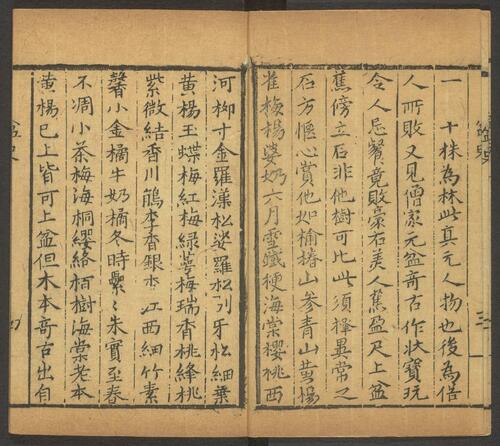 一　十株為林此真元人物也後為偕
人所敗又見僧家元盆奇古作狀寶玩
令人忌餐竟敗豪右美人蕉盈尺上盆
蕉傍立石非他樹可比此須擇異常之
石方愜心賞他如榆椿山參青山黃楊
雀梅楊婆奶六月雪鐵梗海棠櫻桃西
河柳寸金羅漢松娑羅松刂牙松細葉
黃楊玉蝶梅紅梅綠萼梅瑞香桃絳桃
紫微結香川鵑李杏銀杏江西細竹素
馨小金橘牛奶橘冬時纍〻朱實至春
不凋小茶梅海桐纓絡栢樹海棠老本
黃楊已上皆可上盆但木本奇古出自